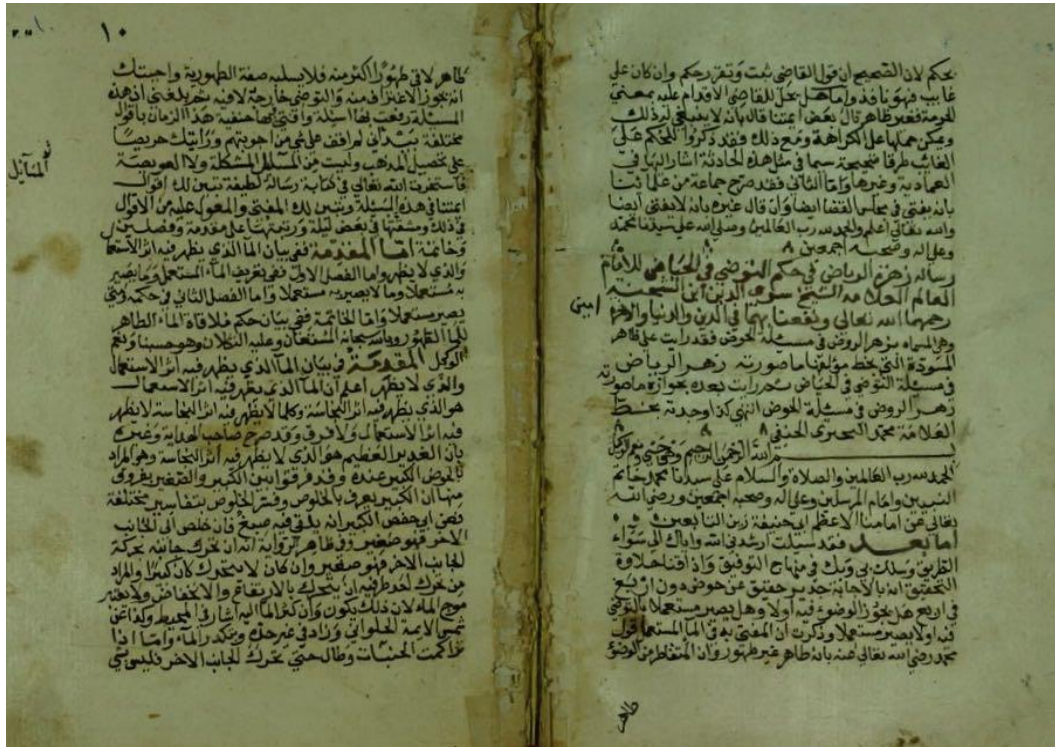 بحكم لان الصحيح ان قول القاضي ثبت وتقرر حكم وان كان على
غايب فهو نافذ واما هل يحل للقاضي الاقدام عليه بمعنى
الحرمة فغير ظاهر قال بعض ايمتنا قال بانه لا ينبغي له ذلك
ويمكن حملها على الكراهة ومع ذلك فقد ذكروا للحكم على
الغائب طرقا صحيحة سيما في مثل هذه الحادثة اشار اليها في
العمادية وغيرها واما الثاني فقد صرح جماعة من علمائنا
بانه يفتي في مجلس القضا ايضا وان قال غيره بانه لا يفتي ايضا
والله تعالى اعلم والحمد لله رب العالمين وصلى الله على سيدنا محمد
وعلى اله وصحبه اجمعين
رسالة زهر الرياض في حكم التوضي في الحياض للامام
العالم العلامه الشيخ سري الدين ابن الشحنه
رحمهما الله تعالى ونفعنا بهما في الدين والدنيا والاخرة
امين
وهي المسماه بزهر الروض في مسئلة الحوض فقد رايت على ظاهر
المسودة التي بخط مؤلفها ما صورته زهر الرياض
في مسئلة التوضي في الحياض ثم رايت بعده بجوازه ما صورته
زهر الروض في مسئلة الحوض انتهى كذا وجدته بخط
العلامة محمد البحيري الحنفي
بسم الله الرحمن الرحيم وهو حسبي ونعم الوكيل
الحمد لله رب العالمين والصلاة والسلام على سيدنا محمد خاتم
النبيين وامام المرسلين وعلى اله وصحبه اجمعين ورضي الله
تعالى عن امامنا الاعظم ابي حنيفة زين التابعين
اما بعد فقد سيلت ارشدني الله واياك الى سواء
الطريق وسلك بي وبك في منهاج التوفيق واذاقنا حلاوة
التحقيق انه بالاجابة جدير حقيق عن حوض دون اربع
في اربع هل يجوز الوضوء فيه اولا وهل يصير مستعملا بالتوضي
فيه اولا يصير مستعملا وذكرت ان المفتى به في الما المستعمل قول
محمد رضي الله تعالى عنه بانه طاهر غير طهور وان المتقاطر من الوضؤ
طاهر
١٠
طاهر لاقى طهورا اكثر منه فلا يسلبه صفة الطهورية واجبتك
انه يجوز الاغتراف منه والتوضي خارجه لا فيه ثم بلغني ان هذه
المسئلة رفعت بها اسيلة وافتى بها حنفية هذا الزمان باقوال
مختلفة لم اقف على شي من اجوبتهم ورايتك حريصا
على تحصيل المذهب وليست من المسايل المشكلة ولا العويصة
المسايل
فاستخرت الله تعالى في كتابة رسالة لطيفة تبين لك اقوال
ايمتنا في هذه المسئلة وتبين لك المفتى والمعول عليه من الاقوال
في ذلك ومشقتها في بعض ليلة ورتبتها على مقدمة وفصلين
وخاتمة اما المقدمة ففي بيان الما الذي يظهر فيه اثر الاستعما
والذي لا يظهر واما الفصل الاول ففي تعريف الماء المستعمل وما يصير
به مستعملا وما لا يصير به مستعملا واما الفصل الثاني في حكمه ومتى
يصير مستعملا واما الخاتمة ففي بيان حكم ملاقاة الماء الطاهر
للما الطهور وبالله سبحانه المستعان وعليه التكلان وهو حسبنا ونعم
الوكيل المقدمة في بيان الما الذي يظهر فيه اثر الاستعمال
والذي لا يظهر اعلم ان الما الذي يظهر فيه اثر الاستعمال
هو الذي يظهر فيه اثر النجاسة وكلما لا يظهر فيه اثر النجاسة لا يظهر
فيه اثر الاستعمال ولا فرق وقد صرح صاحب الهداية وغيره
بان الغدير العظيم هو الذي لا يظهر فيه اثر النجاسة وهو المراد
بالحوض الكبير عنده وقد فرقوا بين الكبير والصغير بفروق
منها ان الكبير يعرف بالخلوص وفسر الخلوص بتفاسير مختلفة
فعن ابي حفص الكبير انه يلقى فيه صبغ فان خلص الى الجانب
الاخر فهو صغير وفي ظاهر الرواية انه ان تحرك جانبه بحركة
الجانب الاخر فهو صغير وان كان لا يتحرك كان كبيرا والمراد
من تحرك احد طرفيه ان يتحرك بالارتفاع والانخفاض ولا يعتبر
موج الماء لان ذلك يكون وان كثر الما اليه اشار في المحيط وكذا عن
شمس الايمة الحلواني وزاد في غير حد ويتكدر الماء واما اذا
تراكمت الحنيات وطال حتى تحرك الجانب الاخر فليس بشي